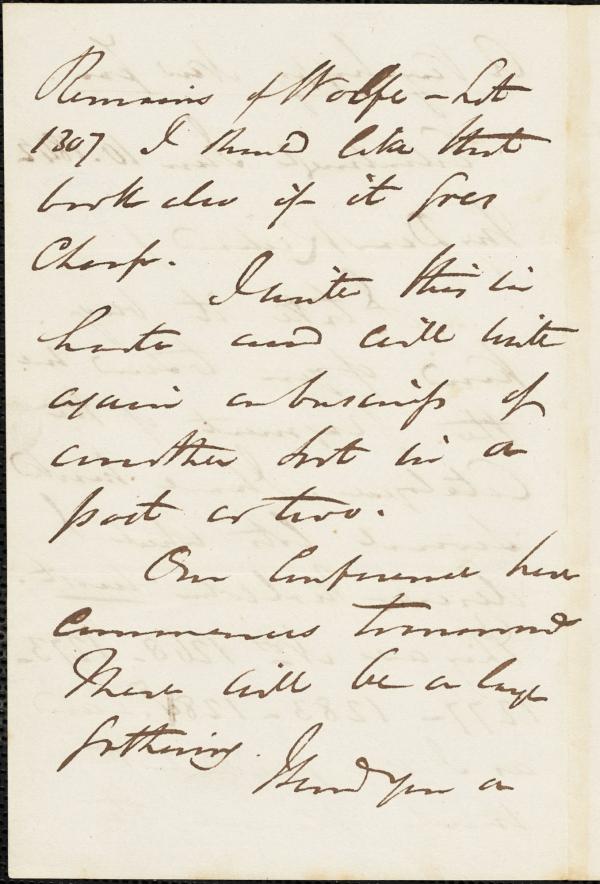 Remains of Wolfe - Lot
1307 I should like that
book also if it goes
Cheap.
I write this in
haste and will write
again on business of
another sort in a
post or two.
Our Conference here
commences tomorrow
There will be a large
gathering.
I send you a